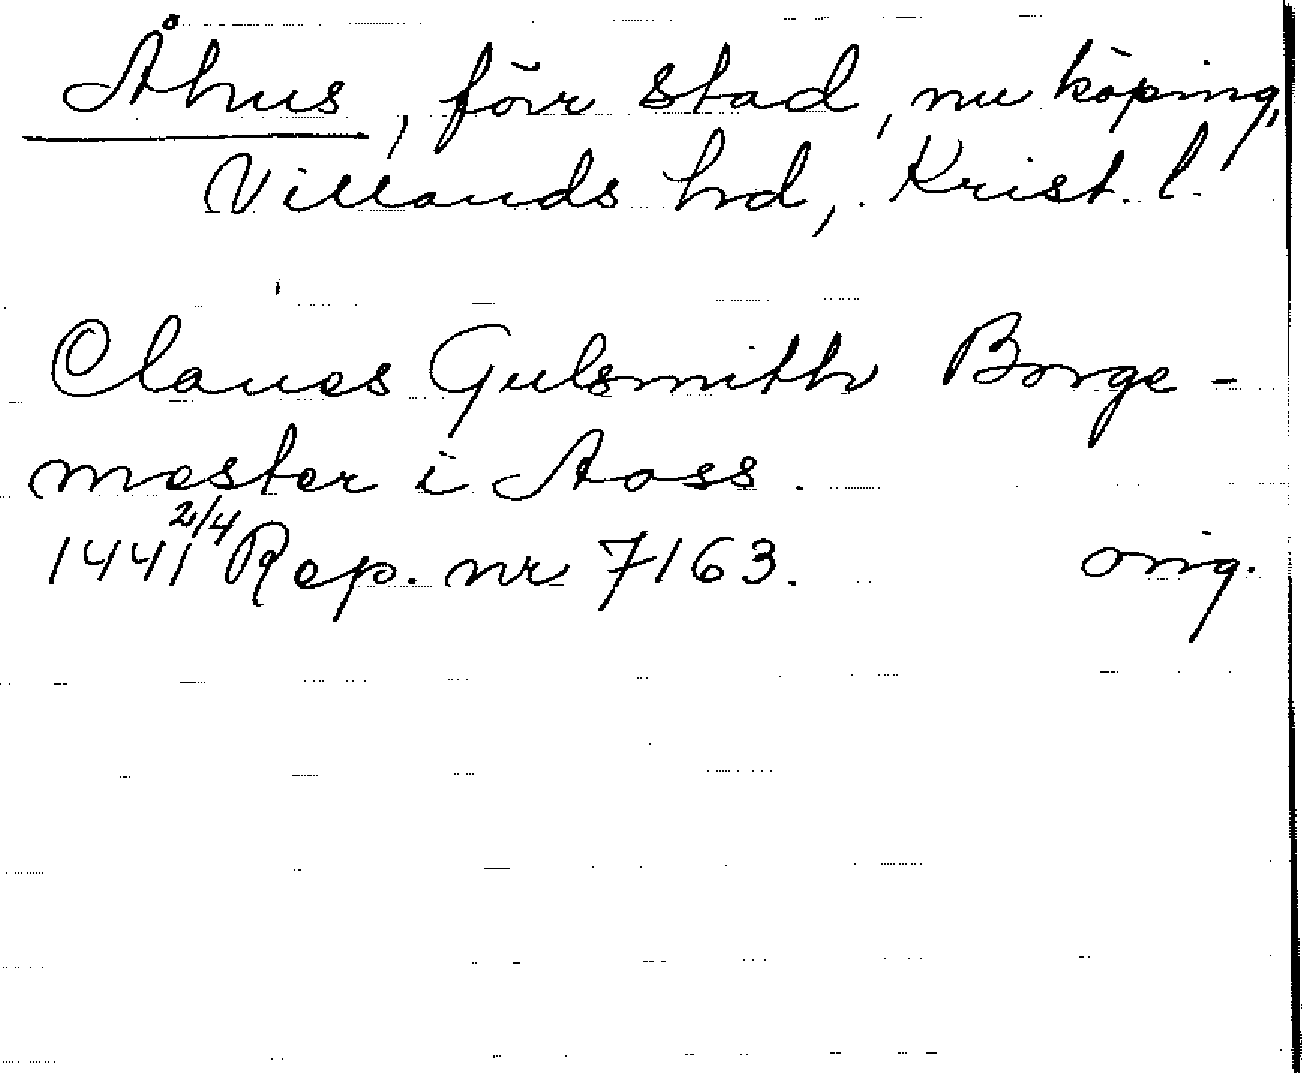 Åhus, förr stad, nu köping,
Villands hd, Krist. l.
Claues Gulsmith Borge-
mester i Aoss.
1441 2/4 Rep. nr 7163. orig.